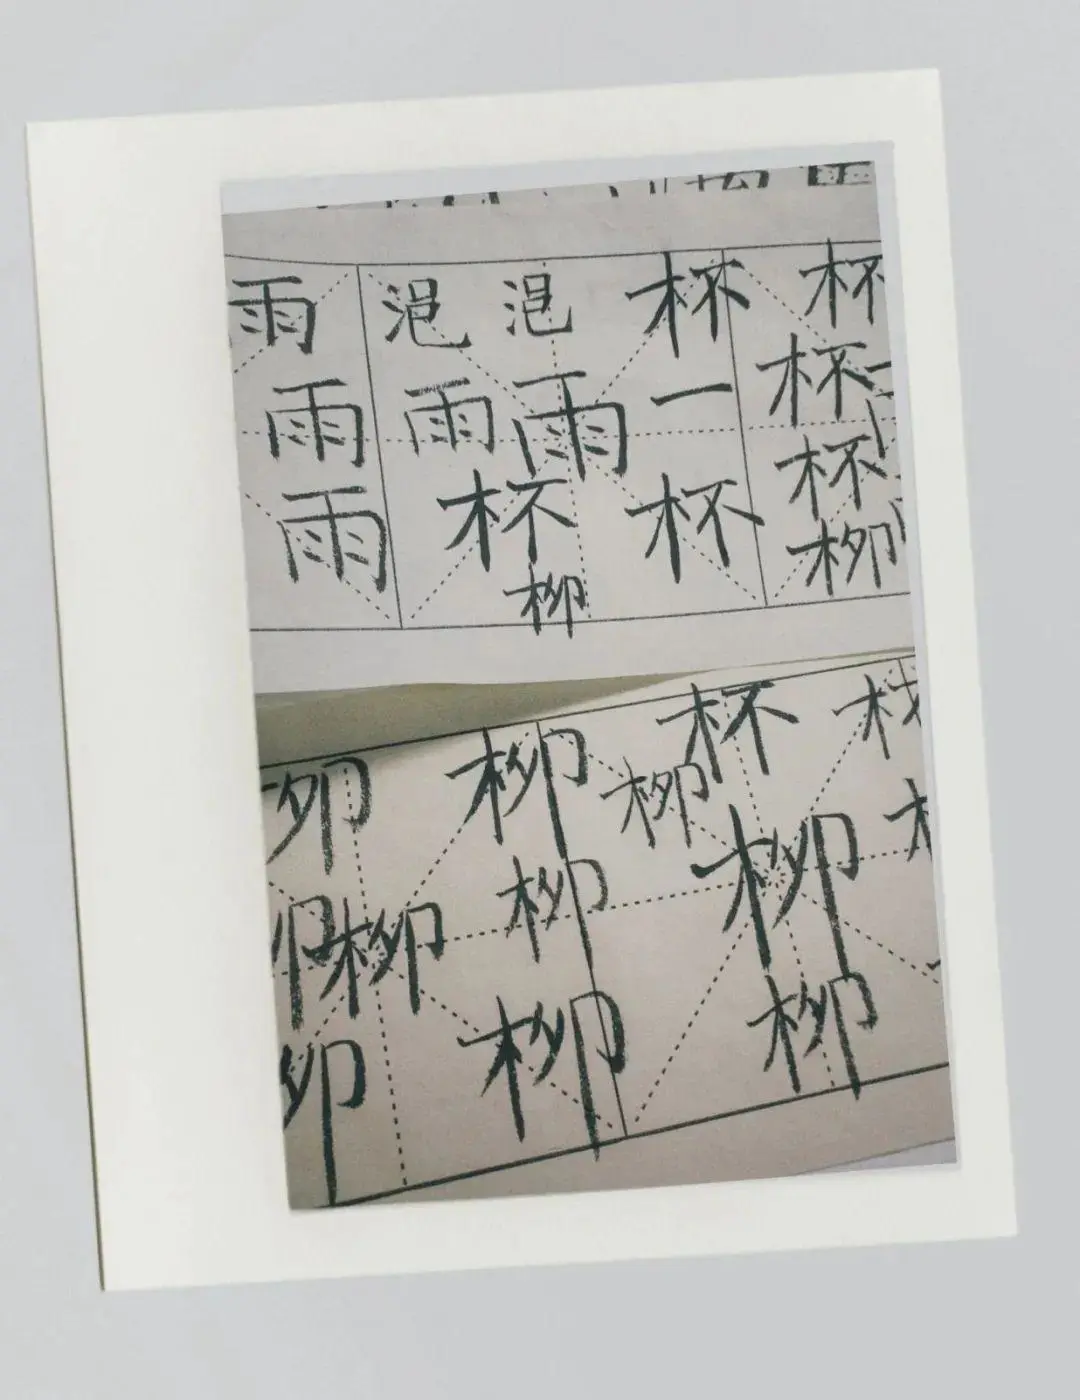 雨 浥 浥 杯 杯
雨 雨 雨 一 杯
雨 杯 杯 杯
柳 柳
柳 柳 杯
柳 柳
柳 柳 柳
柳 柳